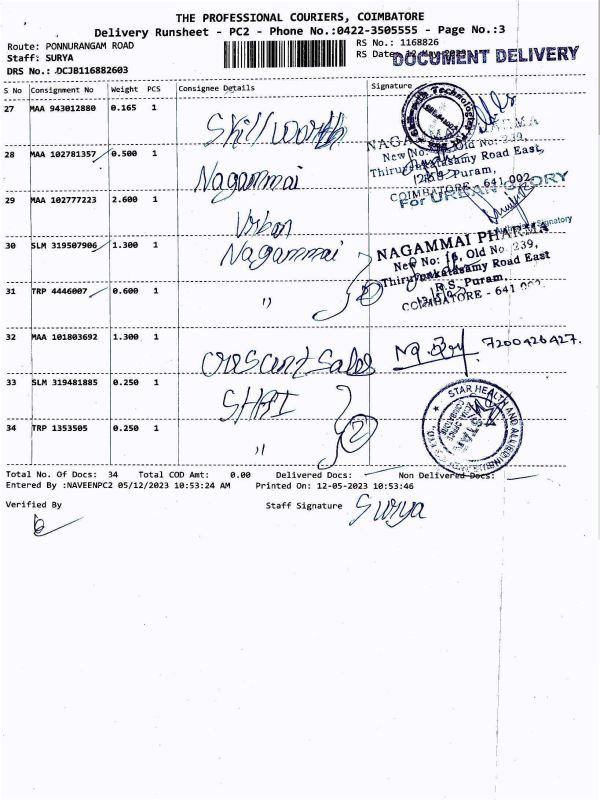 THE PROFESSIONAL COURIERS, COIMBATORE
Delivery Runsheet - PC2 - Phone No.:0422-3505555 - Page No.:3
Route: PONNURANGAM ROAD
RS No.: 1168826
Staff: SURYA
RS Date: 12 May 2023
DOCUMENT DELIVERY
DRS No.: DCJB116882603
S No Consignment No Weight PCS Consignee Details Signature
27 MAA 943012880 0.165 1 Skillworth
28 MAA 102781357 0.500 1 Nagammai
New No: 16, Old No. 239,
Thiruvenkatasamy Road East,
R.S. Puram,
COIMBATORE - 641 002
29 MAA 102777223 2.600 1 Urban
For URBAN GLORY
Signatory
30 SLM 319507906 1.300 1 Nagammai
NAGAMMAI PHARMA
New No: 16, Old No. 239,
Thiruvenkatasamy Road East
R.S. Puram
COIMBATORE - 641 002
31 TRP 4446007 0.600 1 " 2
32 MAA 101803692 1.300 1 Crescent Sales 7200426427.
33 SLM 319481885 0.250 1 SHAI
STAR HEALTH AND ALLIED INSURANCE
34 TRP 1353505 0.250 1 " 2
Total No. Of Docs: 34 Total COD Amt: 0.00 Delivered Docs: Non Delivered Docs:
Entered By :NAVEENPC2 05/12/2023 10:53:24 AM Printed On: 12-05-2023 10:53:46
Verified By Staff Signature Surya